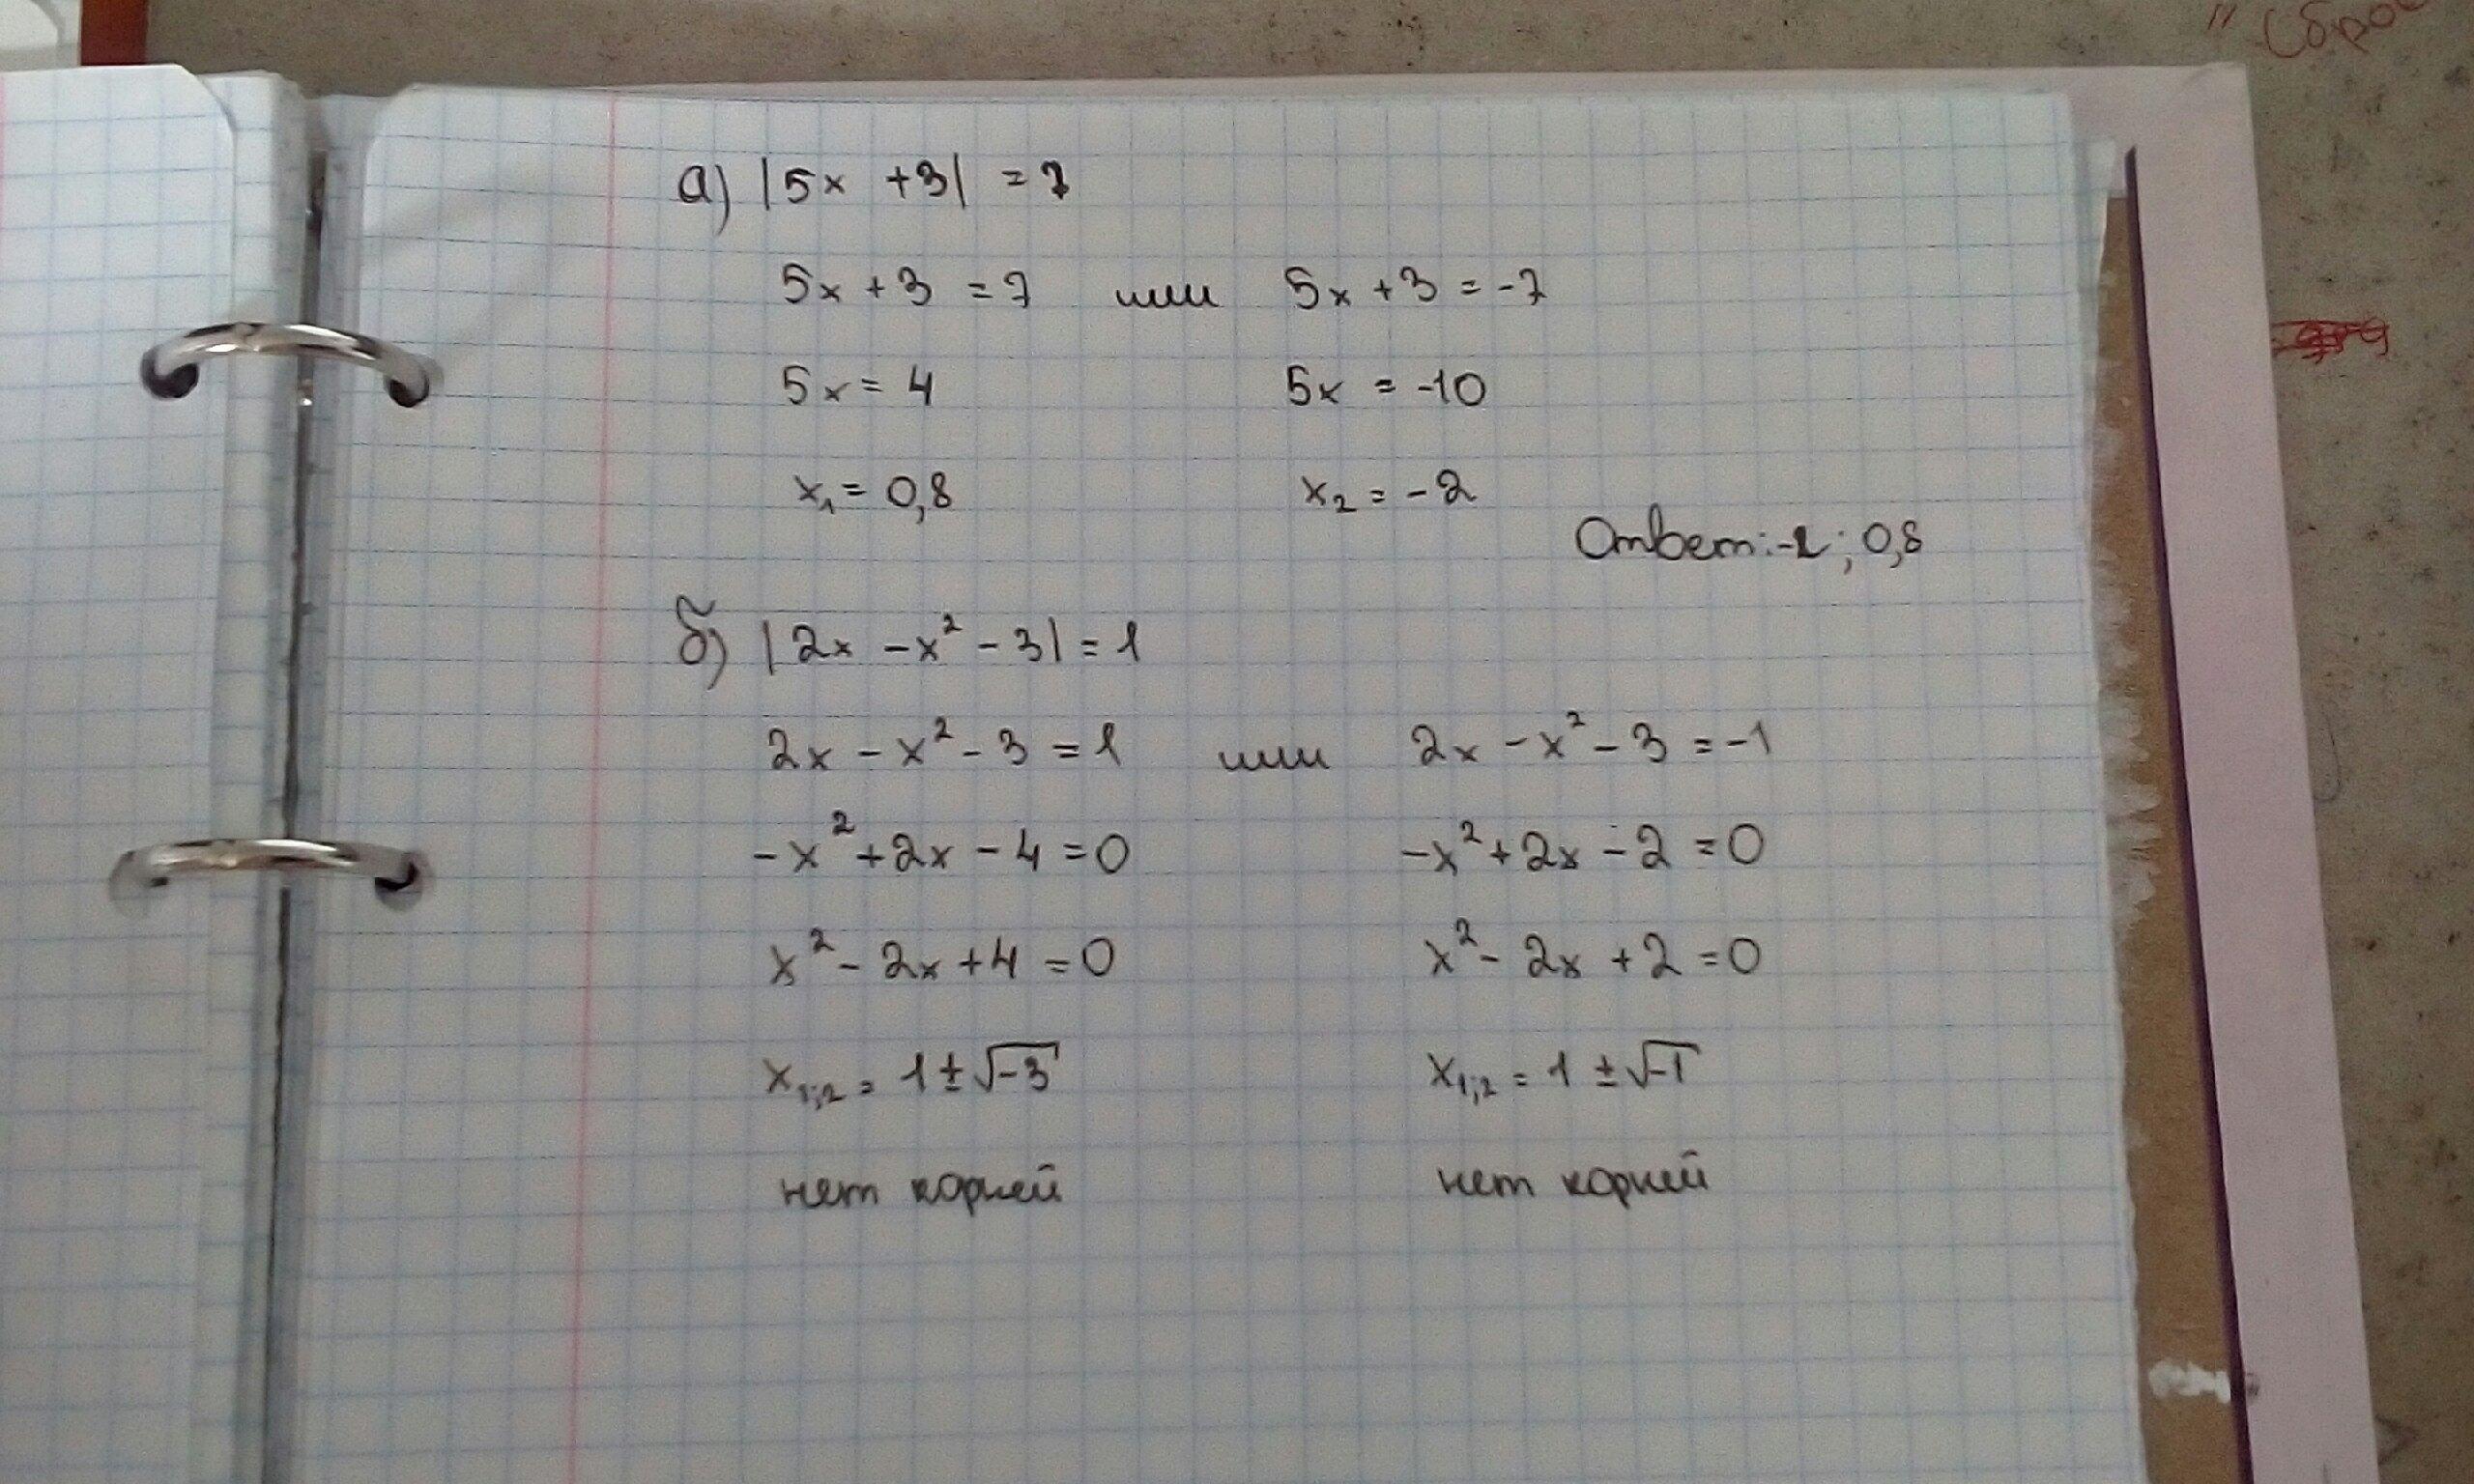 " Сброс
а) |5x +3| = 7
5x + 3 = 7 или 5x + 3 = -7
5x = 4 5x = -10
x₁ = 0,8 x₂ = -2
Ответ: -2; 0,8
б) |2x - x² - 3| = 1
2x - x² - 3 = 1 или 2x - x² - 3 = -1
-x² + 2x - 4 = 0 -x² + 2x - 2 = 0
x² - 2x + 4 = 0 x² - 2x + 2 = 0
x₁;₂ = 1 ± √-3 x₁;₂ = 1 ± √-1
нет корней нет корней